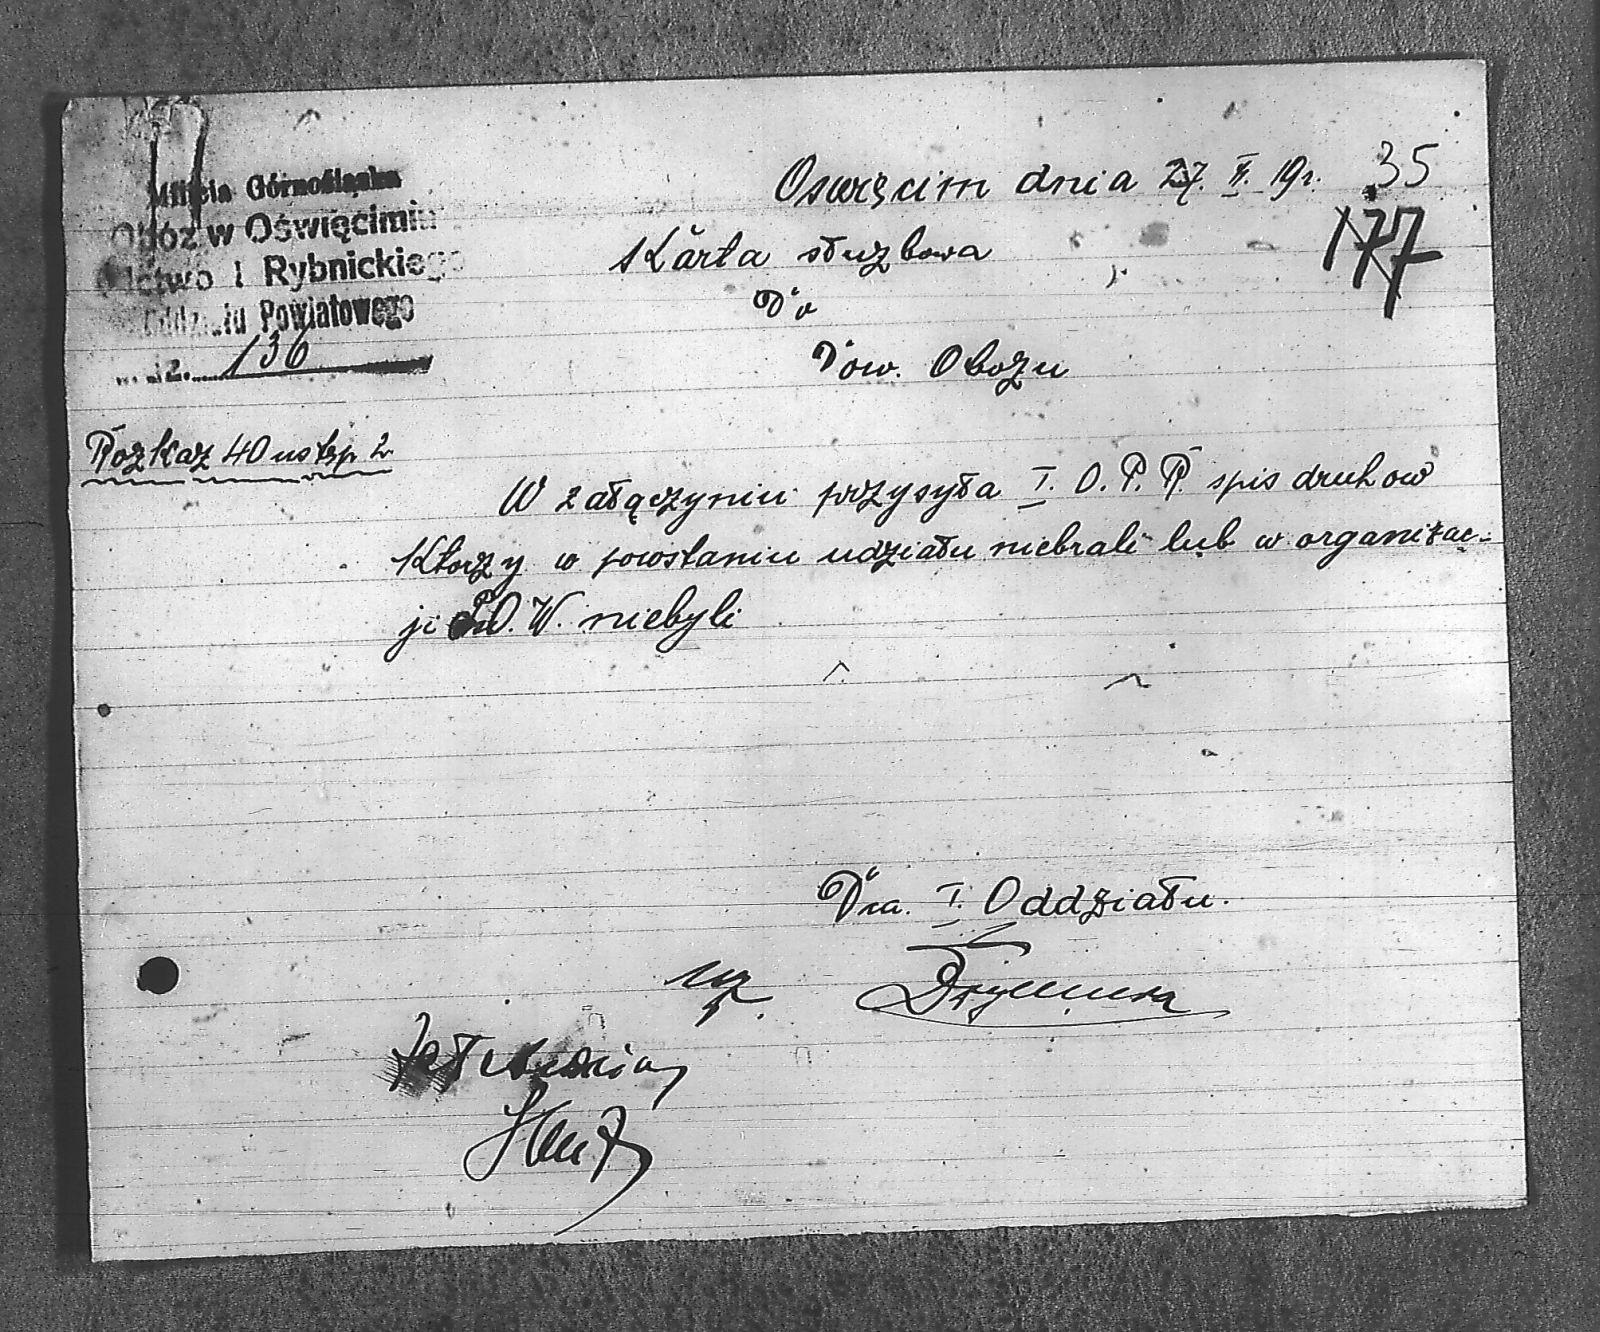 Milicja Górnośląska
Obóz w Oświęcimiu
I Rybnickiego
Oddziału Powiatowego
136
Oswięcim dnia 27. 19r. 35
177
Karta służbowa
Do
Dow. Obozu
Rozkaz 40 ustęp 2
W załączyniu przysyła I. O. P. R. spis druhow
Ktorzy w powstaniu udziału niebrali lub w organizac-
ji P.O.W. niebyli
Dca. I. Oddziału.